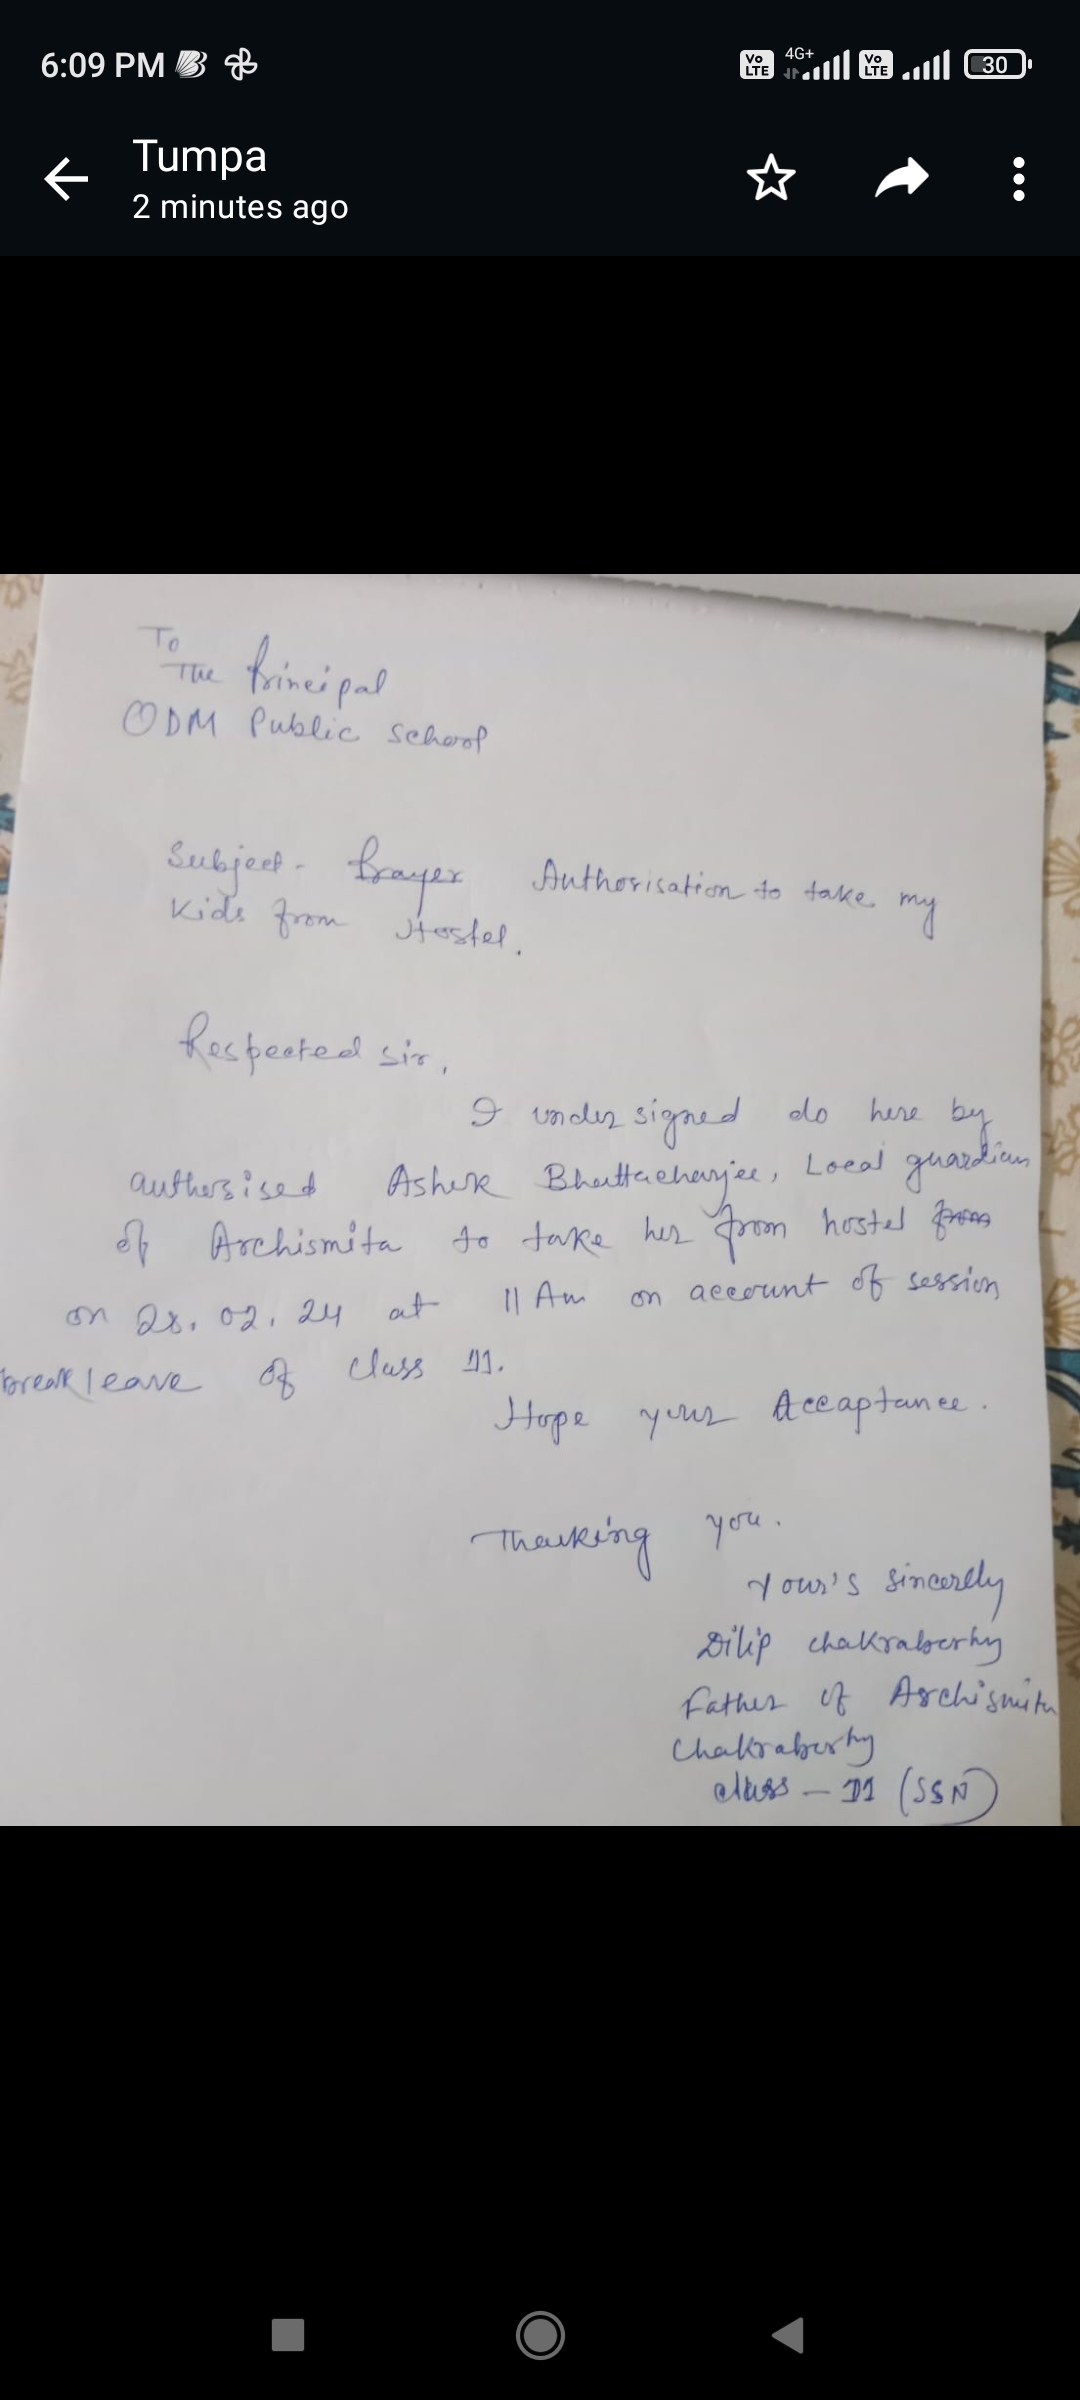 6:09 PM
4G+
Vo LTE
Vo LTE
30
Tumpa
2 minutes ago
To
The Principal
ODM Public School
Subject - Prayer Authorisation to take my
Kids from Hostel.
Respected sir,
I undersigned do here by
authorised Ashok Bhattacharjee, Local guardian
of Archismita to take her from hostel from
on 28.02.24 at 11 Am on account of session
break leave of class 11.
Hope your Accaptance.
Thanking you.
Your's sincerlly
Dilip Chakraborty
Father of Archismita
Chakraborty
class - 11 (SSN)